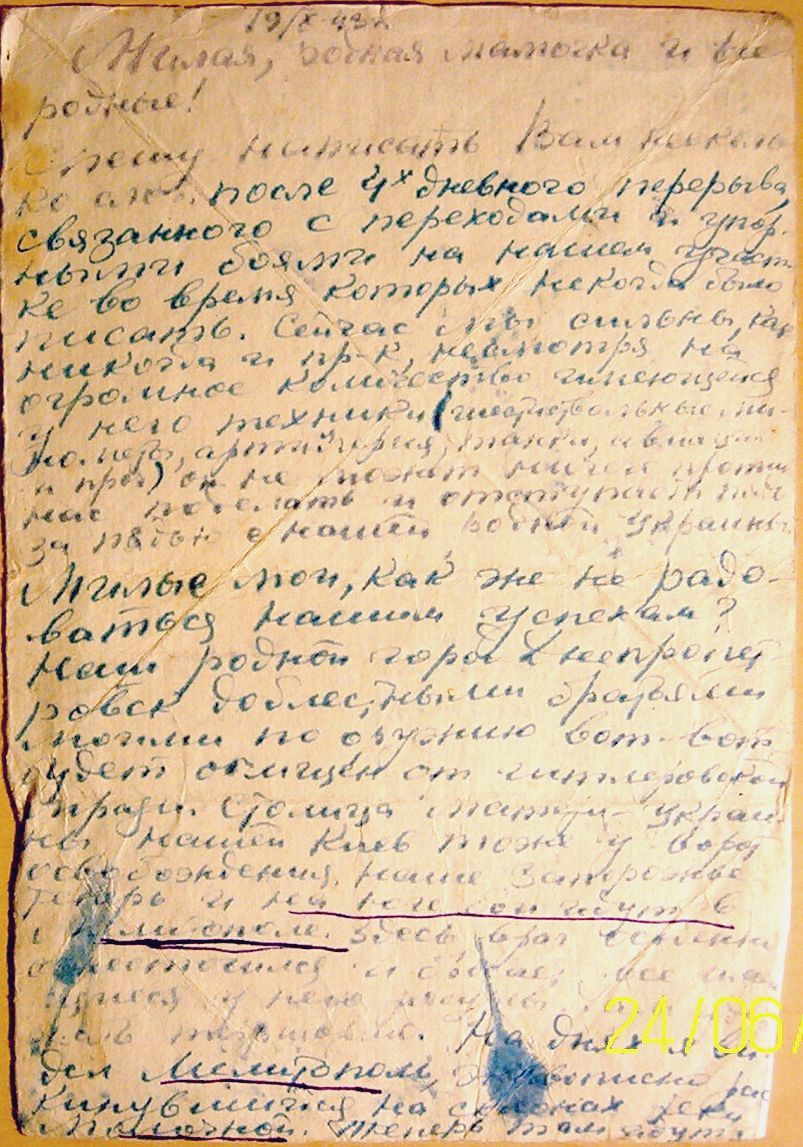 19/X-43г.
Милая, родная мамочка и все
родные!
Спешу написать Вам несколь
ко слов после 4х дневного перерыва,
связанного с переходами и упор-
ными боями на нашем участ-
ке во время которых некогда было
писать. Сейчас мы сильны, как
никогда и пр-к, несмотря на
огромное количество имеющейся
у него техники (шестиствольные ми-
нометы, артиллерия, танки, авиация
и проч) он не может ничего против
нас поделать и отступает пядь
за пядью с нашей родной Украины.
Милые мои, как же не радо-
ваться нашим успехам?
Наш родной город Днепропет-
ровск доблестными братьями
моими по оружию вот-вот
будет очищен от гитлеровской
мрази. Столица матери-Украи-
ны нашей Киев тоже у ворот
освобождения. Наше Запорожье
теперь и на юге бои идут в
Мелитополе. Здесь враг особенно
ожесточился и все
у него
На днях я ви
дел Мелитополь, живописно рас
кинувшийся на склонах реки
Молочной. Теперь там идут
24/06/